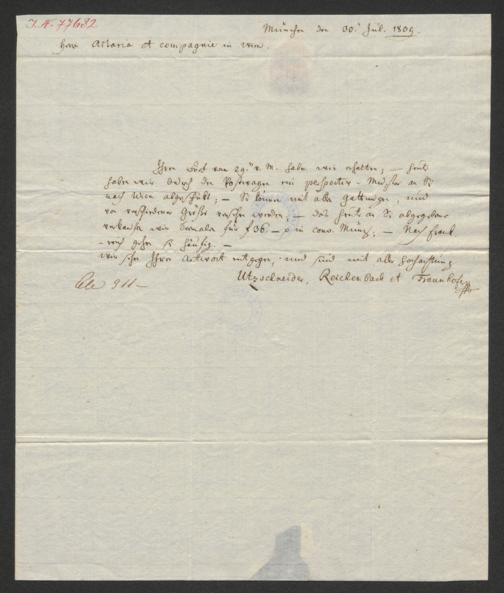 I. N. 77682
München den 30.t Jul. 1809.
Herrn Artaria et compagnie in Wien.
Ihren Brief vom 29.t v. M. haben wir erhalten; — heute
haben wir durch den Postwagen ein perspectiv-Muster an Sie
nach Wien abgeschickt; — Sie können mit aller Gattungen, und
von verschiedener Größe versehen werden; — das heute an Sie abgegebene
verkaufen wir hier für f 36 — in conv. Münz; — Nach Frank-
reich gehen sie häufig. —
Wir sehen Ihrer Antwort entgegen, und sind mit aller Hochachtung
Utzschneider, Reichenbach et Fraunhofer